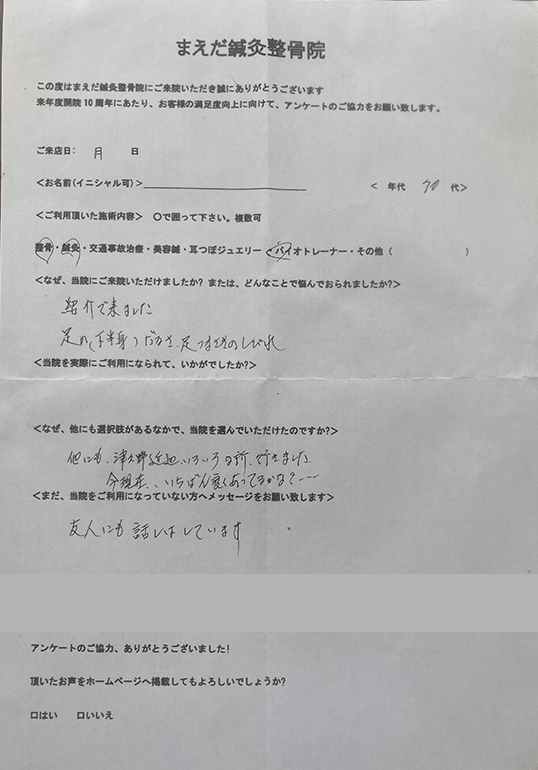 まえだ鍼灸整骨院
この度はまえだ鍼灸整骨院にご来院いただき誠にありがとうございます
来年度開院10周年にあたり、お客様の満足度向上に向けて、アンケートのご協力をお願い致します。
ご来店日： 月 日
＜お名前（イニシャル可）＞
＜ 年代 70 代＞
＜ご利用頂いた施術内容＞ 〇で囲って下さい。複数可
整骨・鍼灸・交通事故治療・美容鍼・耳つぼジュエリー・バイオトレーナー・その他（ ）
＜なぜ、当院にご来院いただけましたか？または、どんなことで悩んでおられましたか？＞
紹介で来ました
足の（下半身）だるさ、足つま先のしびれ
＜当院を実際にご利用になられて、いかがでしたか？＞
＜なぜ、他にも選択肢があるなかで、当院を選んでいただけたのですか？＞
他にも、津久野近辺いろいろな所、行きました
今現在、いちばん良くあってるかな？
＜まだ、当院をご利用になっていない方へメッセージをお願い致します＞
友人にも話しています
アンケートのご協力、ありがとうございました！
頂いたお声をホームページへ掲載してもよろしいでしょうか？
□はい □いいえ